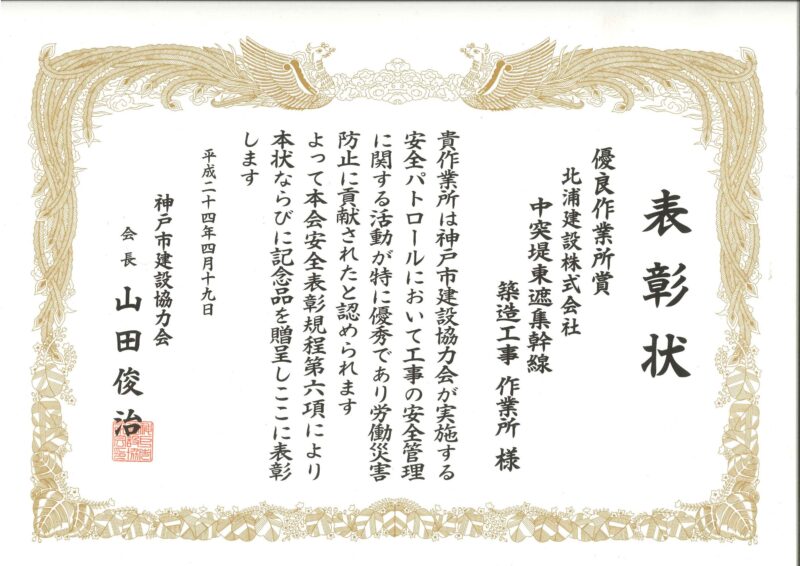 表彰状
優良作業所賞
北浦建設株式会社
中突堤東遮集幹線
築造工事 作業所 様
貴作業所は神戸市建設協力会が実施する
安全パトロールにおいて工事の安全管理
に関する活動が特に優秀であり労働災害
防止に貢献されたと認められます
よって本会安全表彰規程第六項により
本状ならびに記念品を贈呈しここに表彰
します
平成二十四年四月十九日
神戸市建設協力会
会長 山田俊治